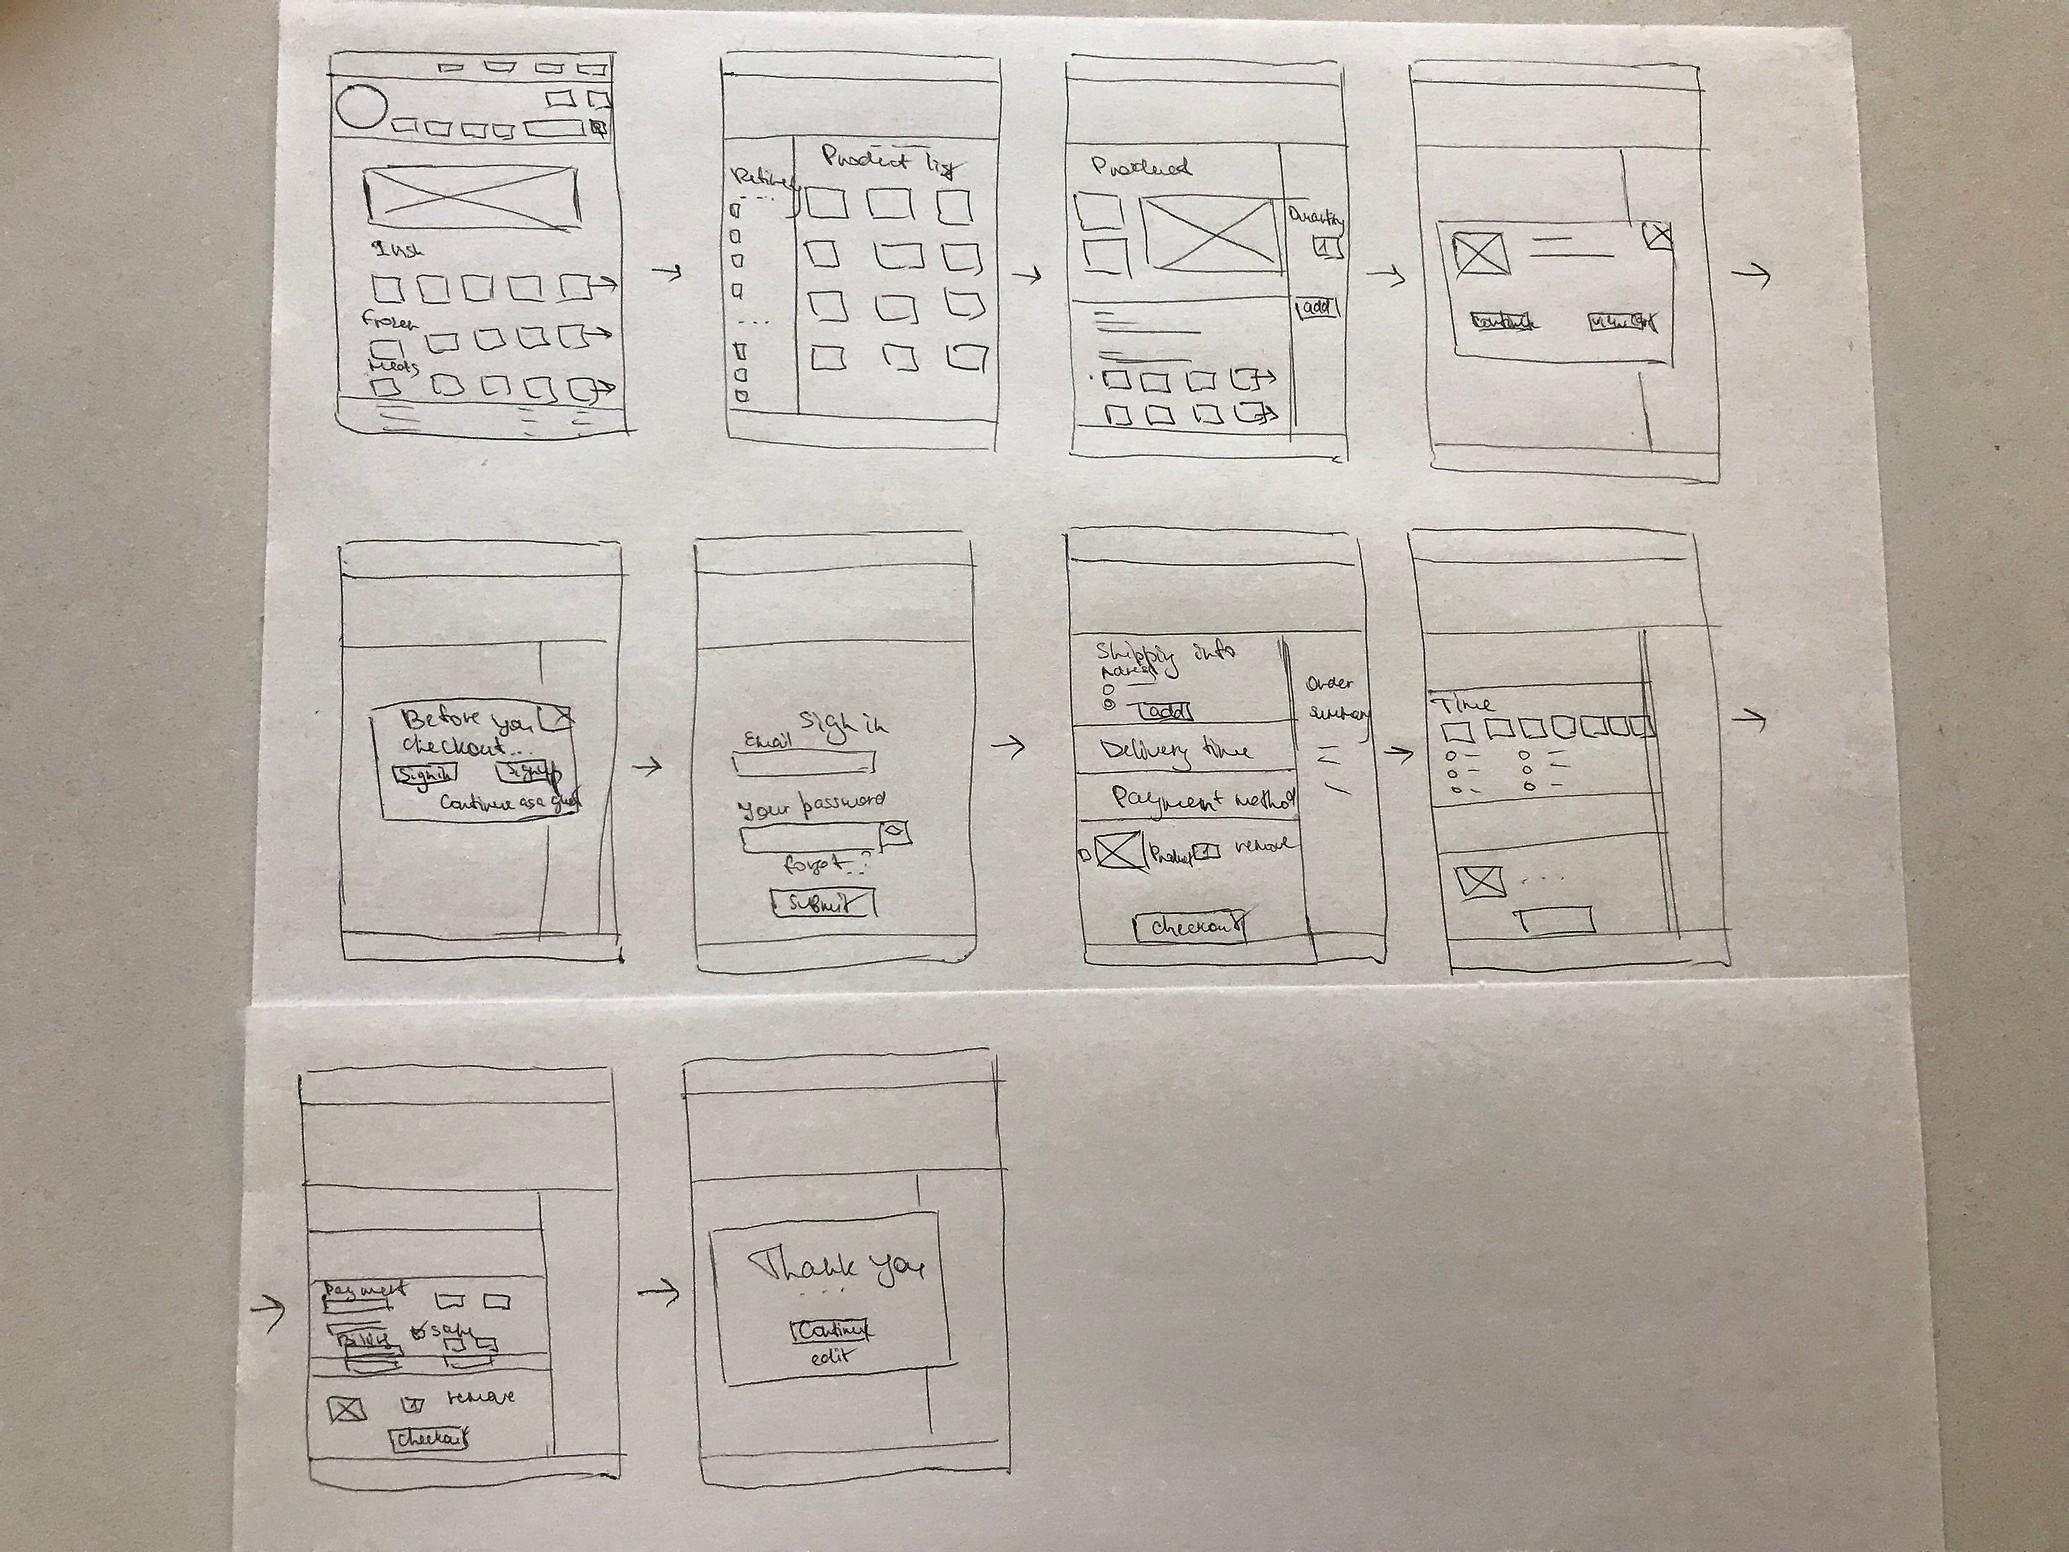 Frozen
Meats
Product list
Product
Quantity
1
add
continue
view cart
Before you
checkout...
Sign in
Sign up
Continue as a guest
Sign in
Email
Your password
forgot..?
Submit
Shipping info
add
Delivery time
Payment method
Product 1 remove
checkout
Order
summary
Time
Payment
Billing
1 remove
checkout
Thank you
...
Continue
edit